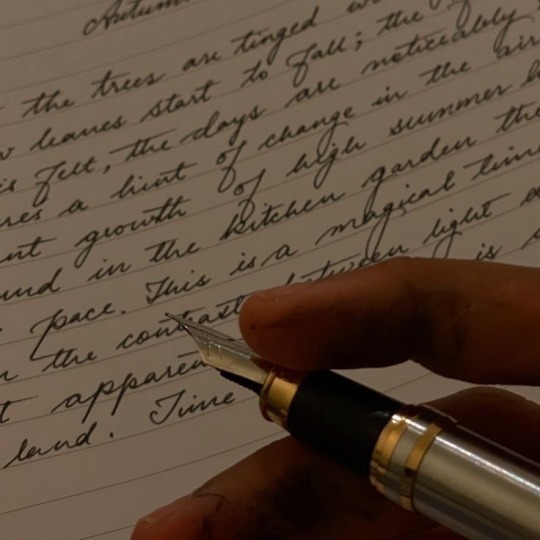 Autumn.
the trees are tinged
leaves start to fall; the
is felt, the days are noticeably
a hint of change in the air
growth of high summer
in the kitchen garden the
pace. This is a magical time
the contrast between light
apparent is
land. Time